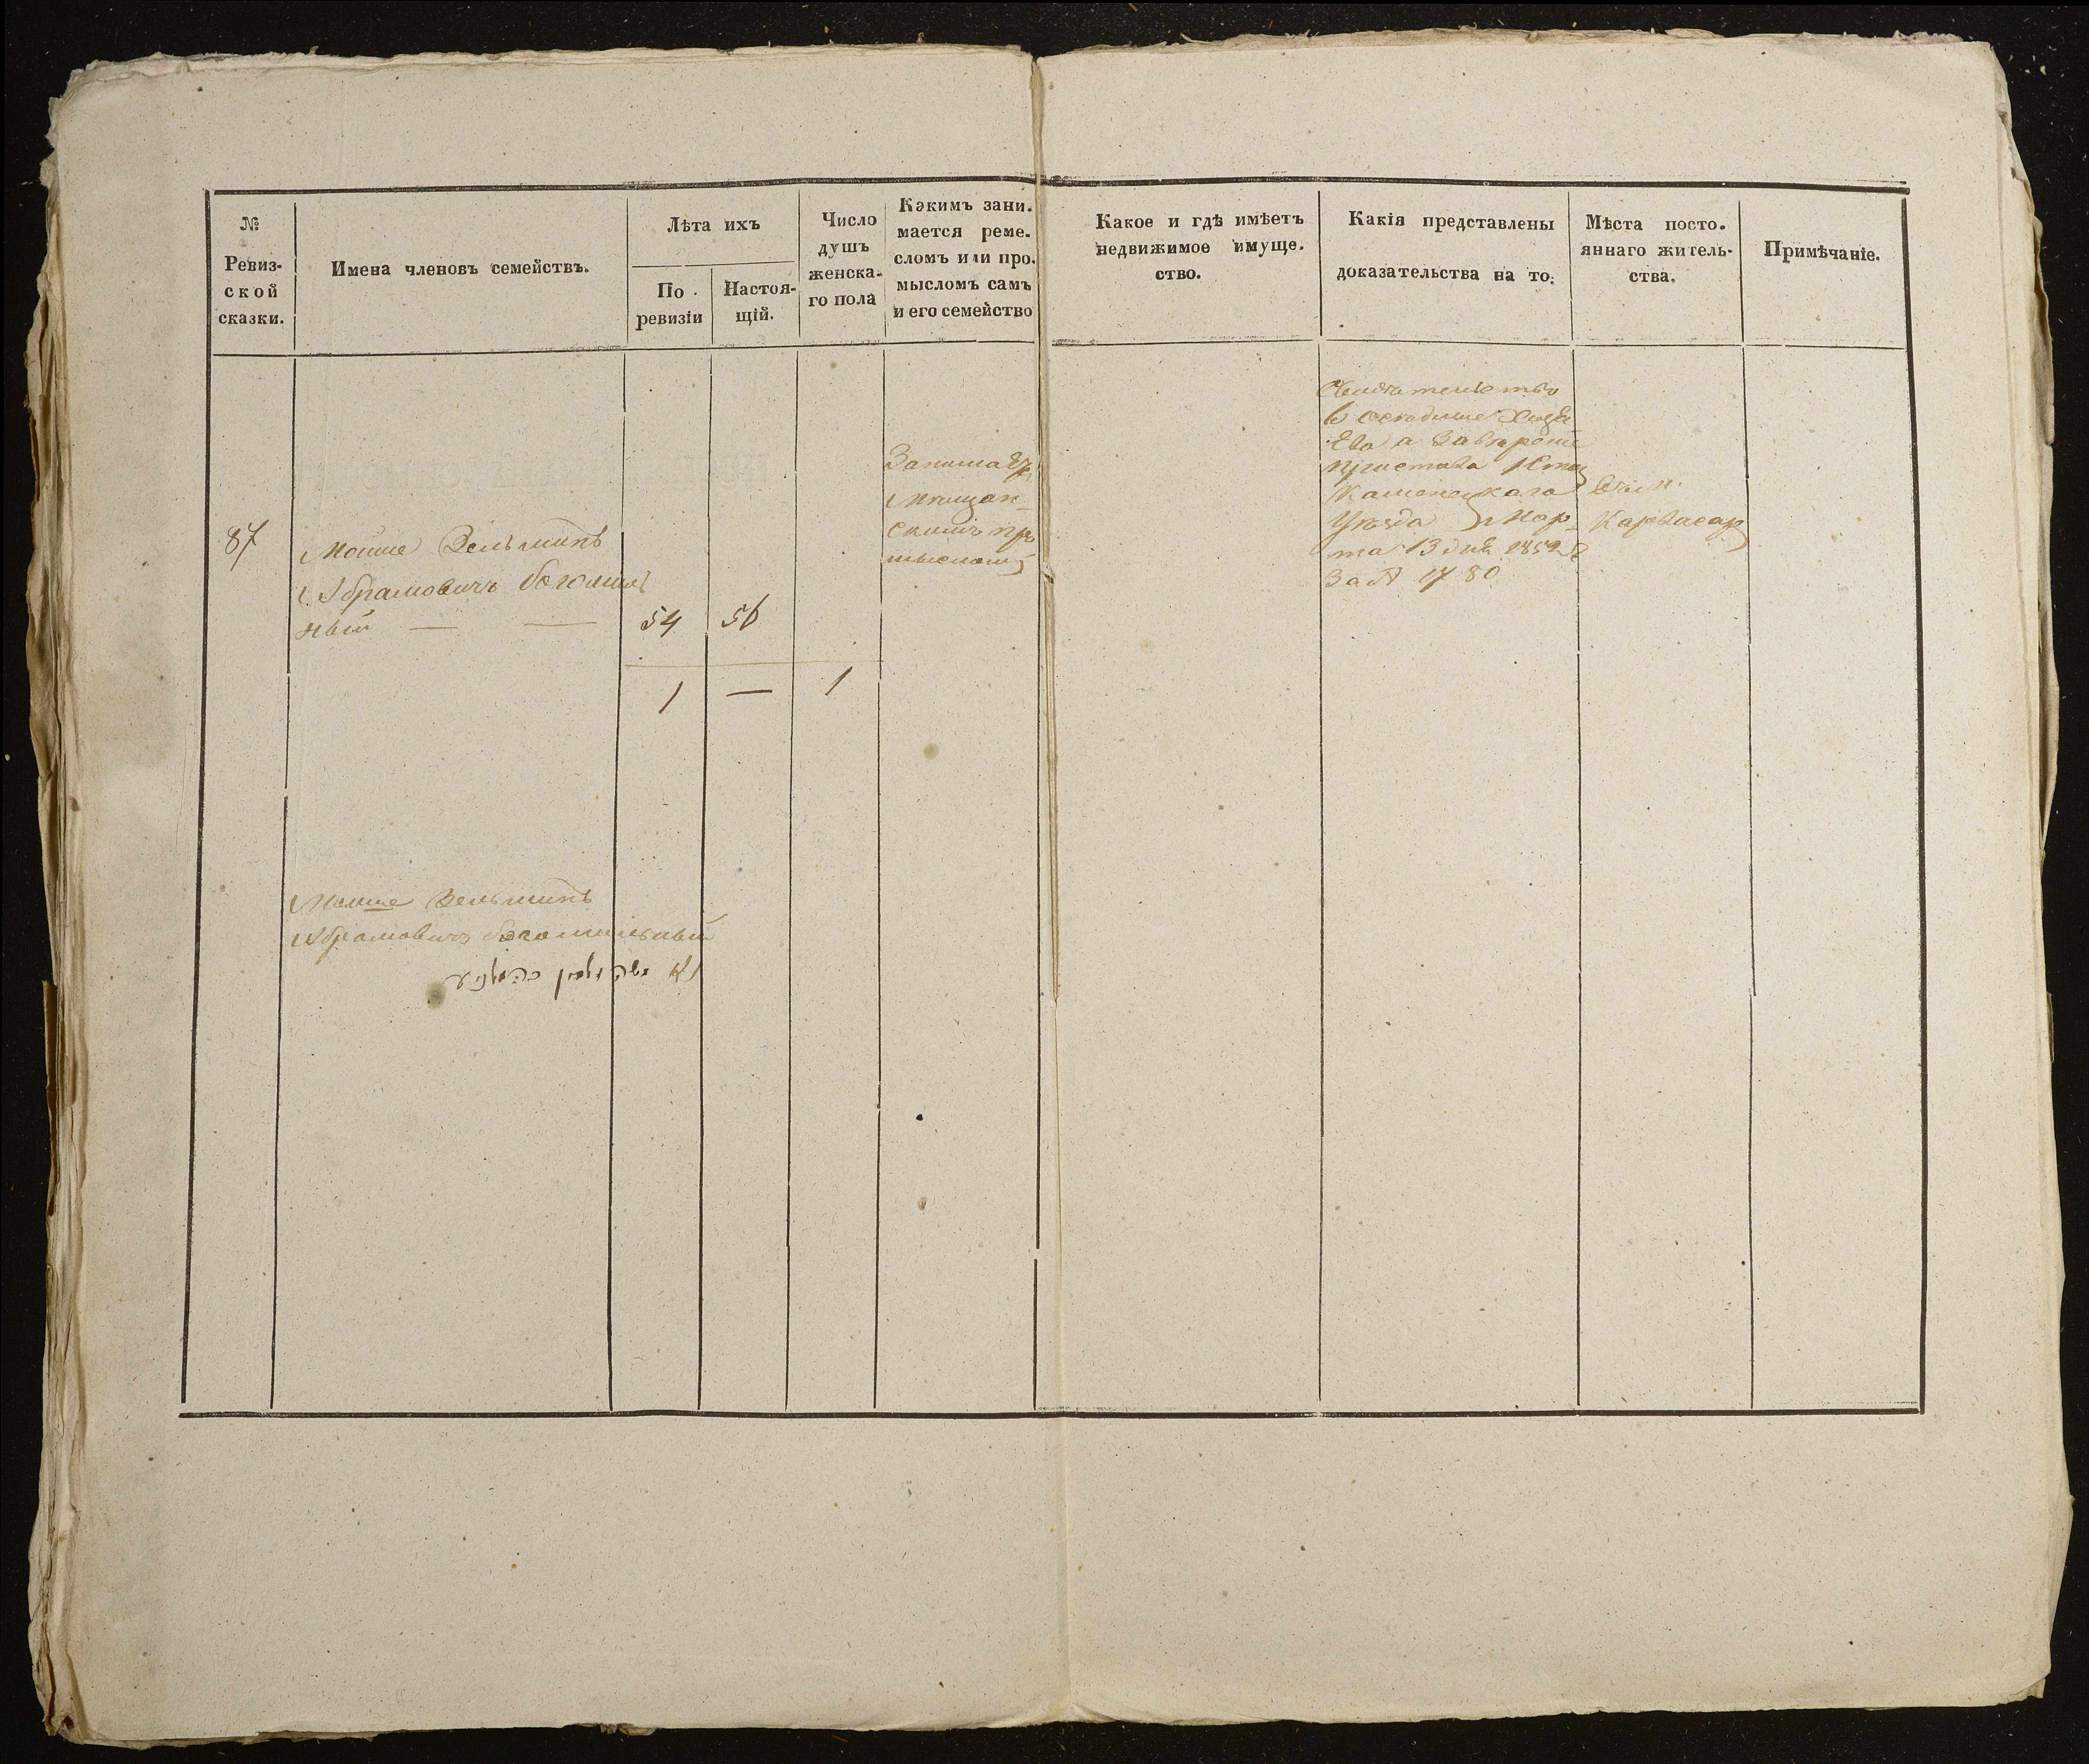 №
Ревиз-
ской
сказки.
Имена членовъ семействъ.
Лѣта ихъ
По
ревизіи
Настоя-
щій.
Число
душъ
женска-
го пола
Какимъ зани-
мается реме-
сломъ или про-
мысломъ самъ
и его семейство
Какое и гдѣ имѣетъ
недвижимое имуще-
ство.
Какія представлены
доказательства на то.
Мѣста посто-
яннаго житель-
ства.
Примѣчаніе.
87
Мошие Вельминъ
Абрамовичъ
ный — —
54 56
1 — 1
Мещан-
скимъ про
мысломъ
Свидетельство
Ева а
пристава
Каменецкаго
Уезда Мар-
та 13 дня 1852
За № 1780
Карвасар
Мошие Вельминъ
Абрамовичъ